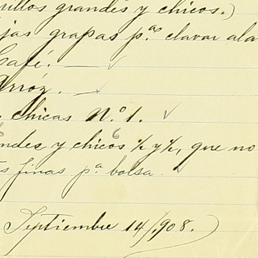 illos grandes y chicos.)
jas grapas p.ª clavar ala
Café.
arroz.
chicas N.º 1.
6
ndes y chicos ½ y ½, que no
s finas p.ª bolsa.
Septiembre 14/908.)